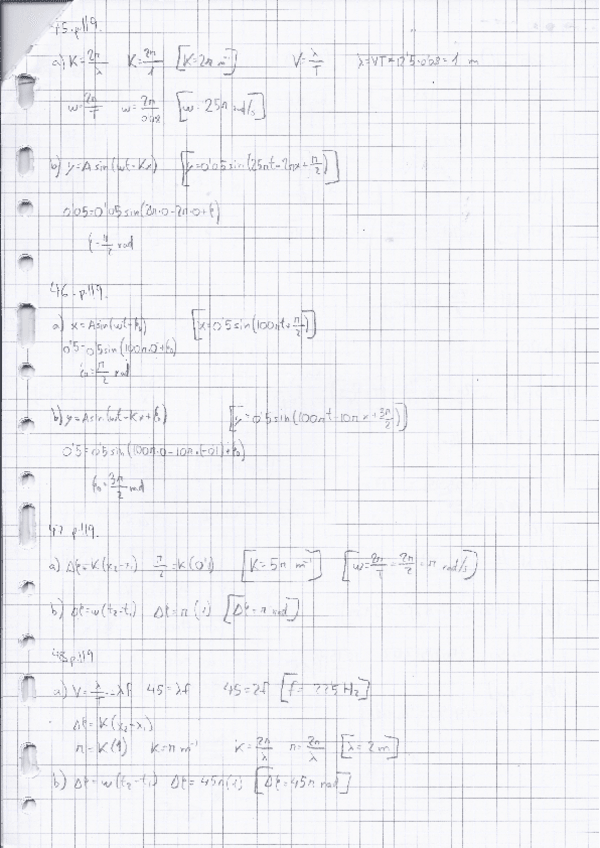 45-p.119.
a) K=2π/λ K=2π/1 [K=2π m⁻¹] V=λ/T λ=VT=12'5·0'08=1 m
w=2π/T w=2π/0'08 [w=25π rad/s]
b) y=A sin(wt-Kx) [y=0'05 sin(25πt-2πx+π/2)]
0'05=0'05 sin(2π·0-2π·0+φ)
φ=π/2 rad
46-p.119.
a) x=A sin(wt+φ₀) [x=0'5 sin(100πt+π/2)]
0'5=0'5 sin(100π·0+φ₀)
φ₀=π/2 rad
b) y=A sin(wt-Kx+φ₀) [y=0'5 sin(100πt-10πx+3π/2)]
0'5=0'5 sin(100π·0-10π·(-0'1)+φ₀)
φ₀=3π/2 rad
47 p.119.
a) Δφ=K(x₂-x₁) π/2=K(0'1) [K=5π m⁻¹] [w=2π/T=2π/2=π rad/s]
b) Δφ=w(t₂-t₁) Δφ=π(1) [Δφ=π rad]
48 p.119
a) V=λ/T=λf 45=λf 45=2f [f=22'5 Hz]
Δφ=K(x₂-x₁)
π=K(1) K=π m⁻¹ K=2π/λ π=2π/λ [λ=2 m]
b) Δφ=w(t₂-t₁) Δφ=45π(1) [Δφ=45π rad]